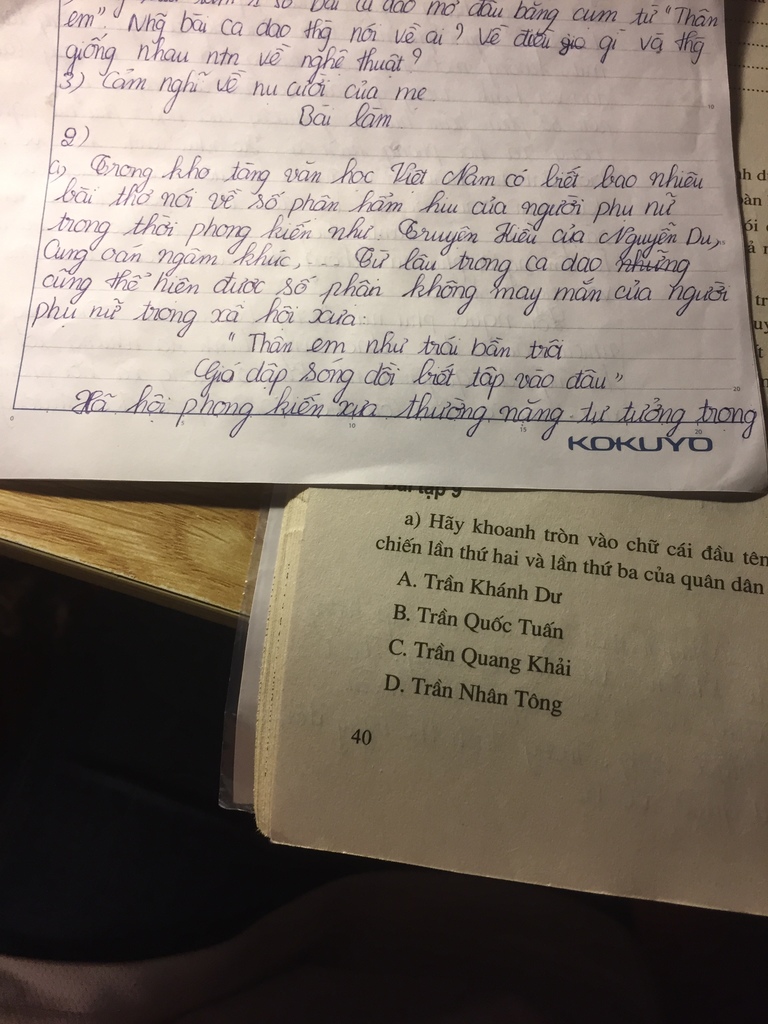 số bài ca dao mở đầu bằng cụm từ "Thân
em". Nhg̃ bài ca dao thg̀ nói về ai? Về điều gì và thg̀
giống nhau ntn về nghệ thuật?
3) Cảm nghĩ về nụ cười của mẹ.
Bài làm
2)
a) Trong kho tàng văn học Việt Nam có biết bao nhiêu
bài thơ nói về số phận hẩm hiu của người phụ nữ
trong thời phong kiến như Truyện Kiều của Nguyễn Du,
Cung oán ngâm khúc, ... Từ lâu trong ca dao những
cũng thể hiện được số phận không may mắn của người
phụ nữ trong xã hội xưa:
"Thân em như trái bần trôi
Gió dập sóng dồi biết tấp vào đâu"
Xã hội phong kiến xưa thường nặng tư tưởng trọng
KOKUYO
Bài tập 9
a) Hãy khoanh tròn vào chữ cái đầu tên
chiến lần thứ hai và lần thứ ba của quân dân
A. Trần Khánh Dư
B. Trần Quốc Tuấn
C. Trần Quang Khải
D. Trần Nhân Tông
40